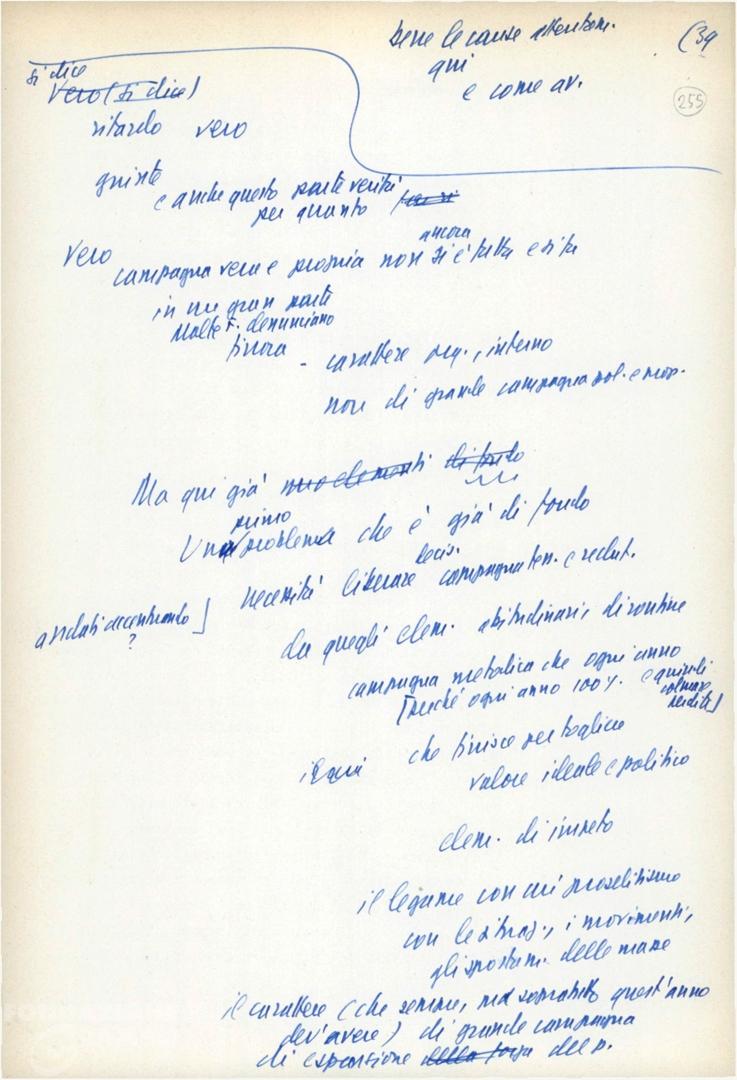 bene le cause attentam.
(39
qui
e come av.
255
si dice
vero (si dice)
ritardo vero
giuste
e anche questo parte verità
per quanto
Vero
ancora
campagna vera e propria non si è fatta e si fa
in un gran parte
Molte F. denunciano
finora - carattere org., interno
non di grande campagna pol. e
Ma qui già elementi di
primo
Una problema che è già di fondo
decis.
necessità liberare campagna tess. e reclut.
andati accentuando ]
?
da quegli elem. abitudinari, di routine
campagna metodica che ogni anno
[perché ogni anno 100% e quindi
colmare
perdite]
che finisce per togliere
valore ideale e politico
elem. di impeto
il legame con proselitismo
con le situaz., i movimenti,
gli spostam. delle masse
il carattere (che sempre, ma soprattutto quest'anno
dev'avere) di grande campagna
di espansione della forza del p.